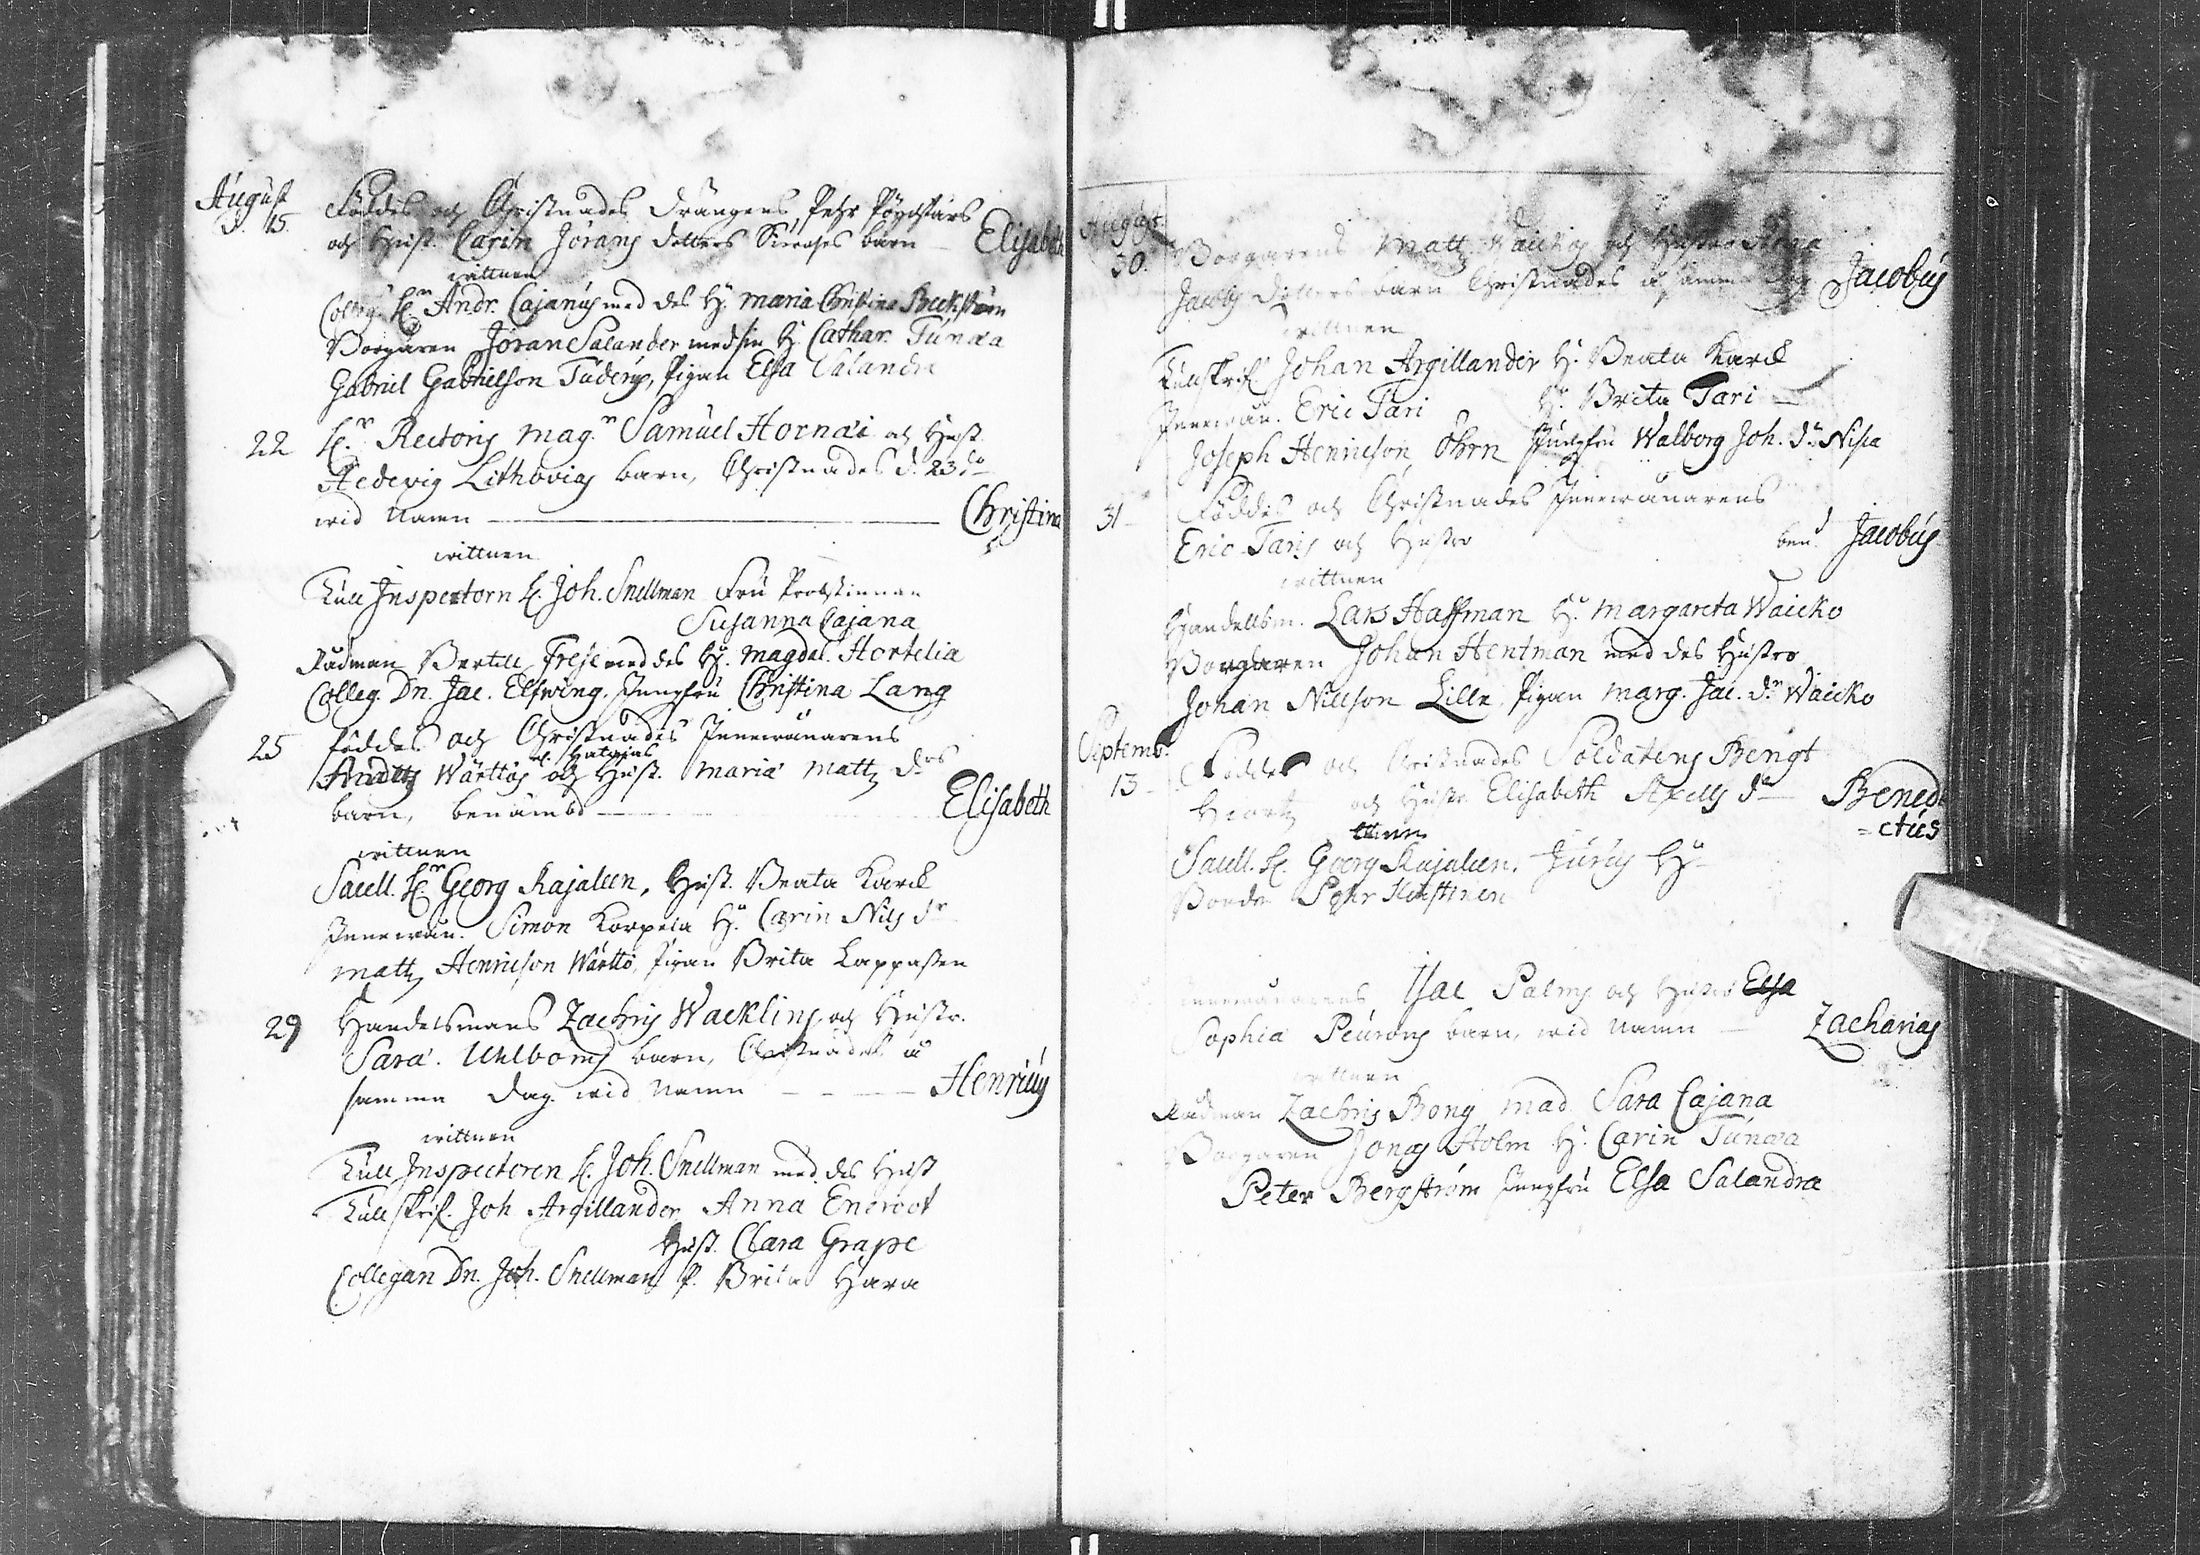 August
d. 15.
Föddes och Christnades Drängens Pehr
och Hust. Carin Jörans dotters barn — Elisabeth
wittnen
Colleg. H:r Andr. Cajanus med des H. Maria Christina
Borgaren Jöran Salander med sin H. Cathar. Tunæa
Gabriel Gabrielson Tuderus, Pigan Elsa Salandr
22 H:r Rectoris Mag:r Samuel Hornæi och Hust.
Hedevig Lithovias barn, Christnades d. 23 d:o
wid namn — Christina
wittnen
Tull Inspectorn H. Joh. Snellman Fru Probstinnan
Susanna Cajana
Rådman Bertill Frese med des H. Magdal. Hortelia
Colleg. Dn. Jac. Elfwing. Jungfru Christina Lang
25 föddes och Christnades Innewånarens
Wärttös och Hust. Maria Matts d:rs
barn, benämbd — Elisabeth
wittnen
Sacell. H:r Georg Kajaleen, Hust. Beata Karck
Innewån. Simon Korpela H:u Carin Nils d:r
Matts Henricson Wärttö, Pigan Brita Lappassen
29 Handelsmans Zachris Wacklins och Hustr.
Sara Uhlboms barn, Christnades å
samma dag wid namn — Henricus
wittnen
Tull Inspectoren H. Joh. Snellman med des Hust
Tullskrif. Joh Argillander Anna Eneroot
Hust. Clara Grape
Collegan Dn. Joh. Snellman P. Brita Hara
August
30. Borgarens Matts och Hustru Anna
Jacobs Dotters barn Christnades å samma dag Jacobus
wittnen
Tullskrif Johan Argillander H. Beata Karck
Innewån. Eric Tari H. Brita Tari
Joseph Henricson Öhrn Jungfru Walborg Joh. d:r Nisia
31 Föddes och Christnades Innewånarens
Eric Taris och Hustro ben:d Jacobus
wittnen
Handelsm. Lars Haffman H:u Margareta Waicko
Borgaren Johan Hentman med des Hustro
Johan Nillson Lille Pigan Marg. Jac. d:r Waicko
Septemb.
13 Föddes och Christnades Soldatens Bengt
Hiorts och Hustr. Elisabeth Axells d:r — Benedi
=ctus
Sacell. H. Georg Kajaleen. H:u
Bonden Pehr
Innewånarens Isac Palms och Hustro Elsa
Sophia Peurons barn, wid namn — Zacharias
wittnen
Rådman Zachris Bong Mad. Sara Cajana
Borgaren Jonas Holm H. Carin Tunæa
Peter Bergström Jungfru Elsa Salandra